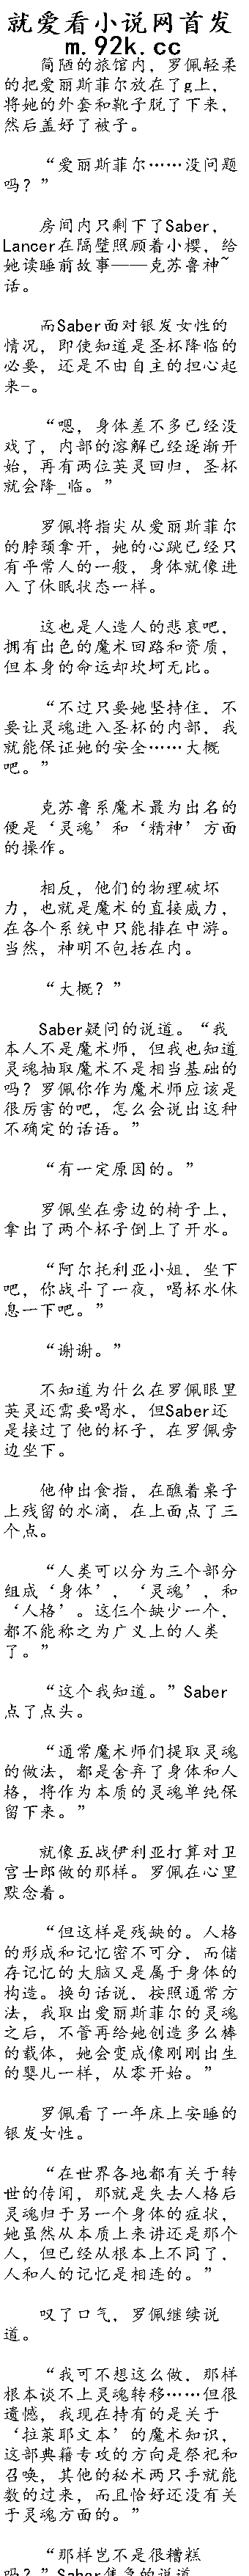 就爱看小说网首发
m.92k.cc
简陋的旅馆内，罗佩轻柔
的把爱丽斯菲尔放在了g上，
将她的外套和靴子脱了下来，
然后盖好了被子。
“爱丽斯菲尔……没问题
吗？”
房间内只剩下了Saber，
Lancer在隔壁照顾着小樱，给
她读睡前故事——克苏鲁神~
话。
而Saber面对银发女性的
情况，即使知道是圣杯降临的
必要，还是不由自主的担心起
来-。
“嗯，身体差不多已经没
戏了，内部的溶解已经逐渐开
始，再有两位英灵回归，圣杯
就会降_临。”
罗佩将指尖从爱丽斯菲尔
的脖颈拿开，她的心跳已经只
有平常人的一般，身体就像进
入了休眠状态一样。
这也是人造人的悲哀吧，
拥有出色的魔术回路和资质，
但本身的命运却坎坷无比。
“不过只要她坚持住，不
要让灵魂进入圣杯的内部，我
就能保证她的安全……大概
吧。”
克苏鲁系魔术最为出名的
便是‘灵魂’和‘精神’方面
的操作。
相反，他们的物理破坏
力，也就是魔术的直接威力，
在各个系统中只能排在中游。
当然，神明不包括在内。
“大概？”
Saber疑问的说道。“我
本人不是魔术师，但我也知道
灵魂抽取魔术不是相当基础的
吗？罗佩你作为魔术师应该是
很厉害的吧，怎么会说出这种
不确定的话语。”
“有一定原因的。”
罗佩坐在旁边的椅子上，
拿出了两个杯子倒上了开水。
“阿尔托利亚小姐，坐下
吧，你战斗了一夜，喝杯水休
息一下吧。”
“谢谢。”
不知道为什么在罗佩眼里
英灵还需要喝水，但Saber还
是接过了他的杯子，在罗佩旁
边坐下。
他伸出食指，在醮着桌子
上残留的水滴，在上面点了三
个点。
“人类可以分为三个部分
组成‘身体’，‘灵魂’，和
‘人格’。这仨个缺少一个，
都不能称之为广义上的人类
了。”
“这个我知道。”Saber
点了点头。
“通常魔术师们提取灵魂
的做法，都是舍弃了身体和人
格，将作为本质的灵魂单纯保
留下来。”
就像五战伊利亚打算对卫
宫士郎做的那样。罗佩在心里
默念着。
“但这样是残缺的。人格
的形成和记忆密不可分，而储
存记忆的大脑又是属于身体的
构造。换句话说，按照通常方
法，我取出爱丽斯菲尔的灵魂
之后，不管再给她创造多么棒
的载体，她会变成像刚刚出生
的婴儿一样，从零开始。”
罗佩看了一年床上安睡的
银发女性。
“在世界各地都有关于转
世的传闻，那就是失去人格后
灵魂归于另一个身体的症状，
她虽然从本质上来讲还是那个
人，但已经从根本上不同了，
人和人的记忆是相连的。”
叹了口气，罗佩继续说
道。
“我可不想这么做，那样
根本谈不上灵魂转移……但很
遗憾，我现在持有的是关于
‘拉莱耶文本’的魔术知识，
这部典籍专攻的方向是祭祀和
召唤，其他的秘术两只手就能
数的过来，而且恰好还没有关
于灵魂方面的。”
“那样岂不是很糟糕
吗？”Saber焦急的说道